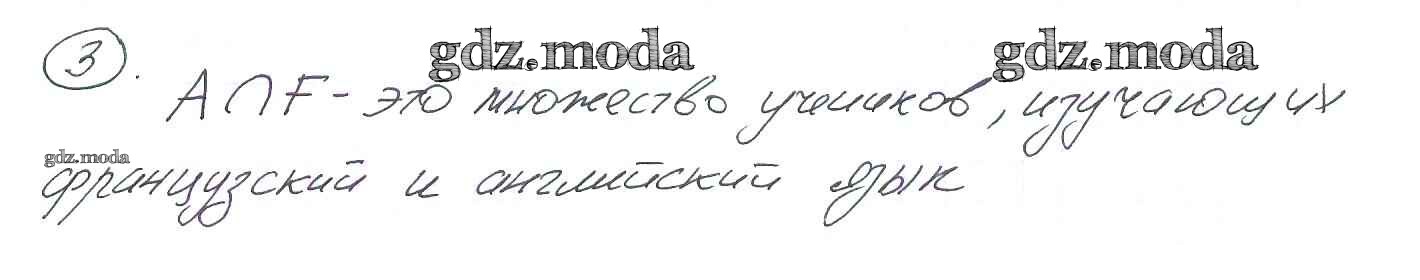 gdz.moda gdz.moda
3.
A∩F - это множество учеников, изучающих
gdz.moda
французский и английский язык